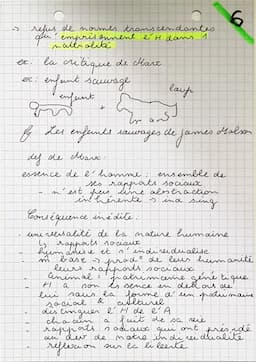 6
→ refus de normes transcendantes
qui emprisonnent l'H dans 1
naturalité
ex: la critique de Marx
ex: enfant sauvage
enfant
loup
Les enfants sauvages de James Malson
def de Marx:
essence de l'homme: ensemble de
ses rapports sociaux
- n'est pas une abstraction
inhérente à 1 ind sing
Conséquence inédite:
- universalité de la nature humaine
rapports sociaux
- humanise et s'individualise
m base → prod° de leur humanité
leurs rapports sociaux
- animal: patrimoine génétique
H a son essence en dehors de
lui sous la forme d'un patrimoine
social & culturel
- distinguer l'H de l'A
chacun a fait de sa vie
rapports sociaux qui ont présidé
au dev de notre individualité
- réflexion sur la liberté